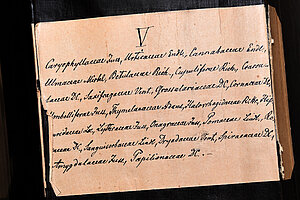 V
Caryophyllaceae Juss, Urticaceae Endl, Cannabaceae Endl,
Ulmaceae Mirbl, Betulaceae Rich, Cupuliferae Rich, Crassu-
laceae DC, Saxifragaceae Vent, Grossulariaceae DC, Cornaceae DC,
Umbelliferae Juss, Thymelaeaceae Adans, Halorrhagidaceae R.Br,
Lythraceae Juss, Onagraceae Juss, Pomaceae Lindl,
ceae DC, Sanguisorbaceae Lindl, Dryadaceae Vent, Spiraeaceae DC,
Amygdalaceae Juss, Papilionaceae DC.